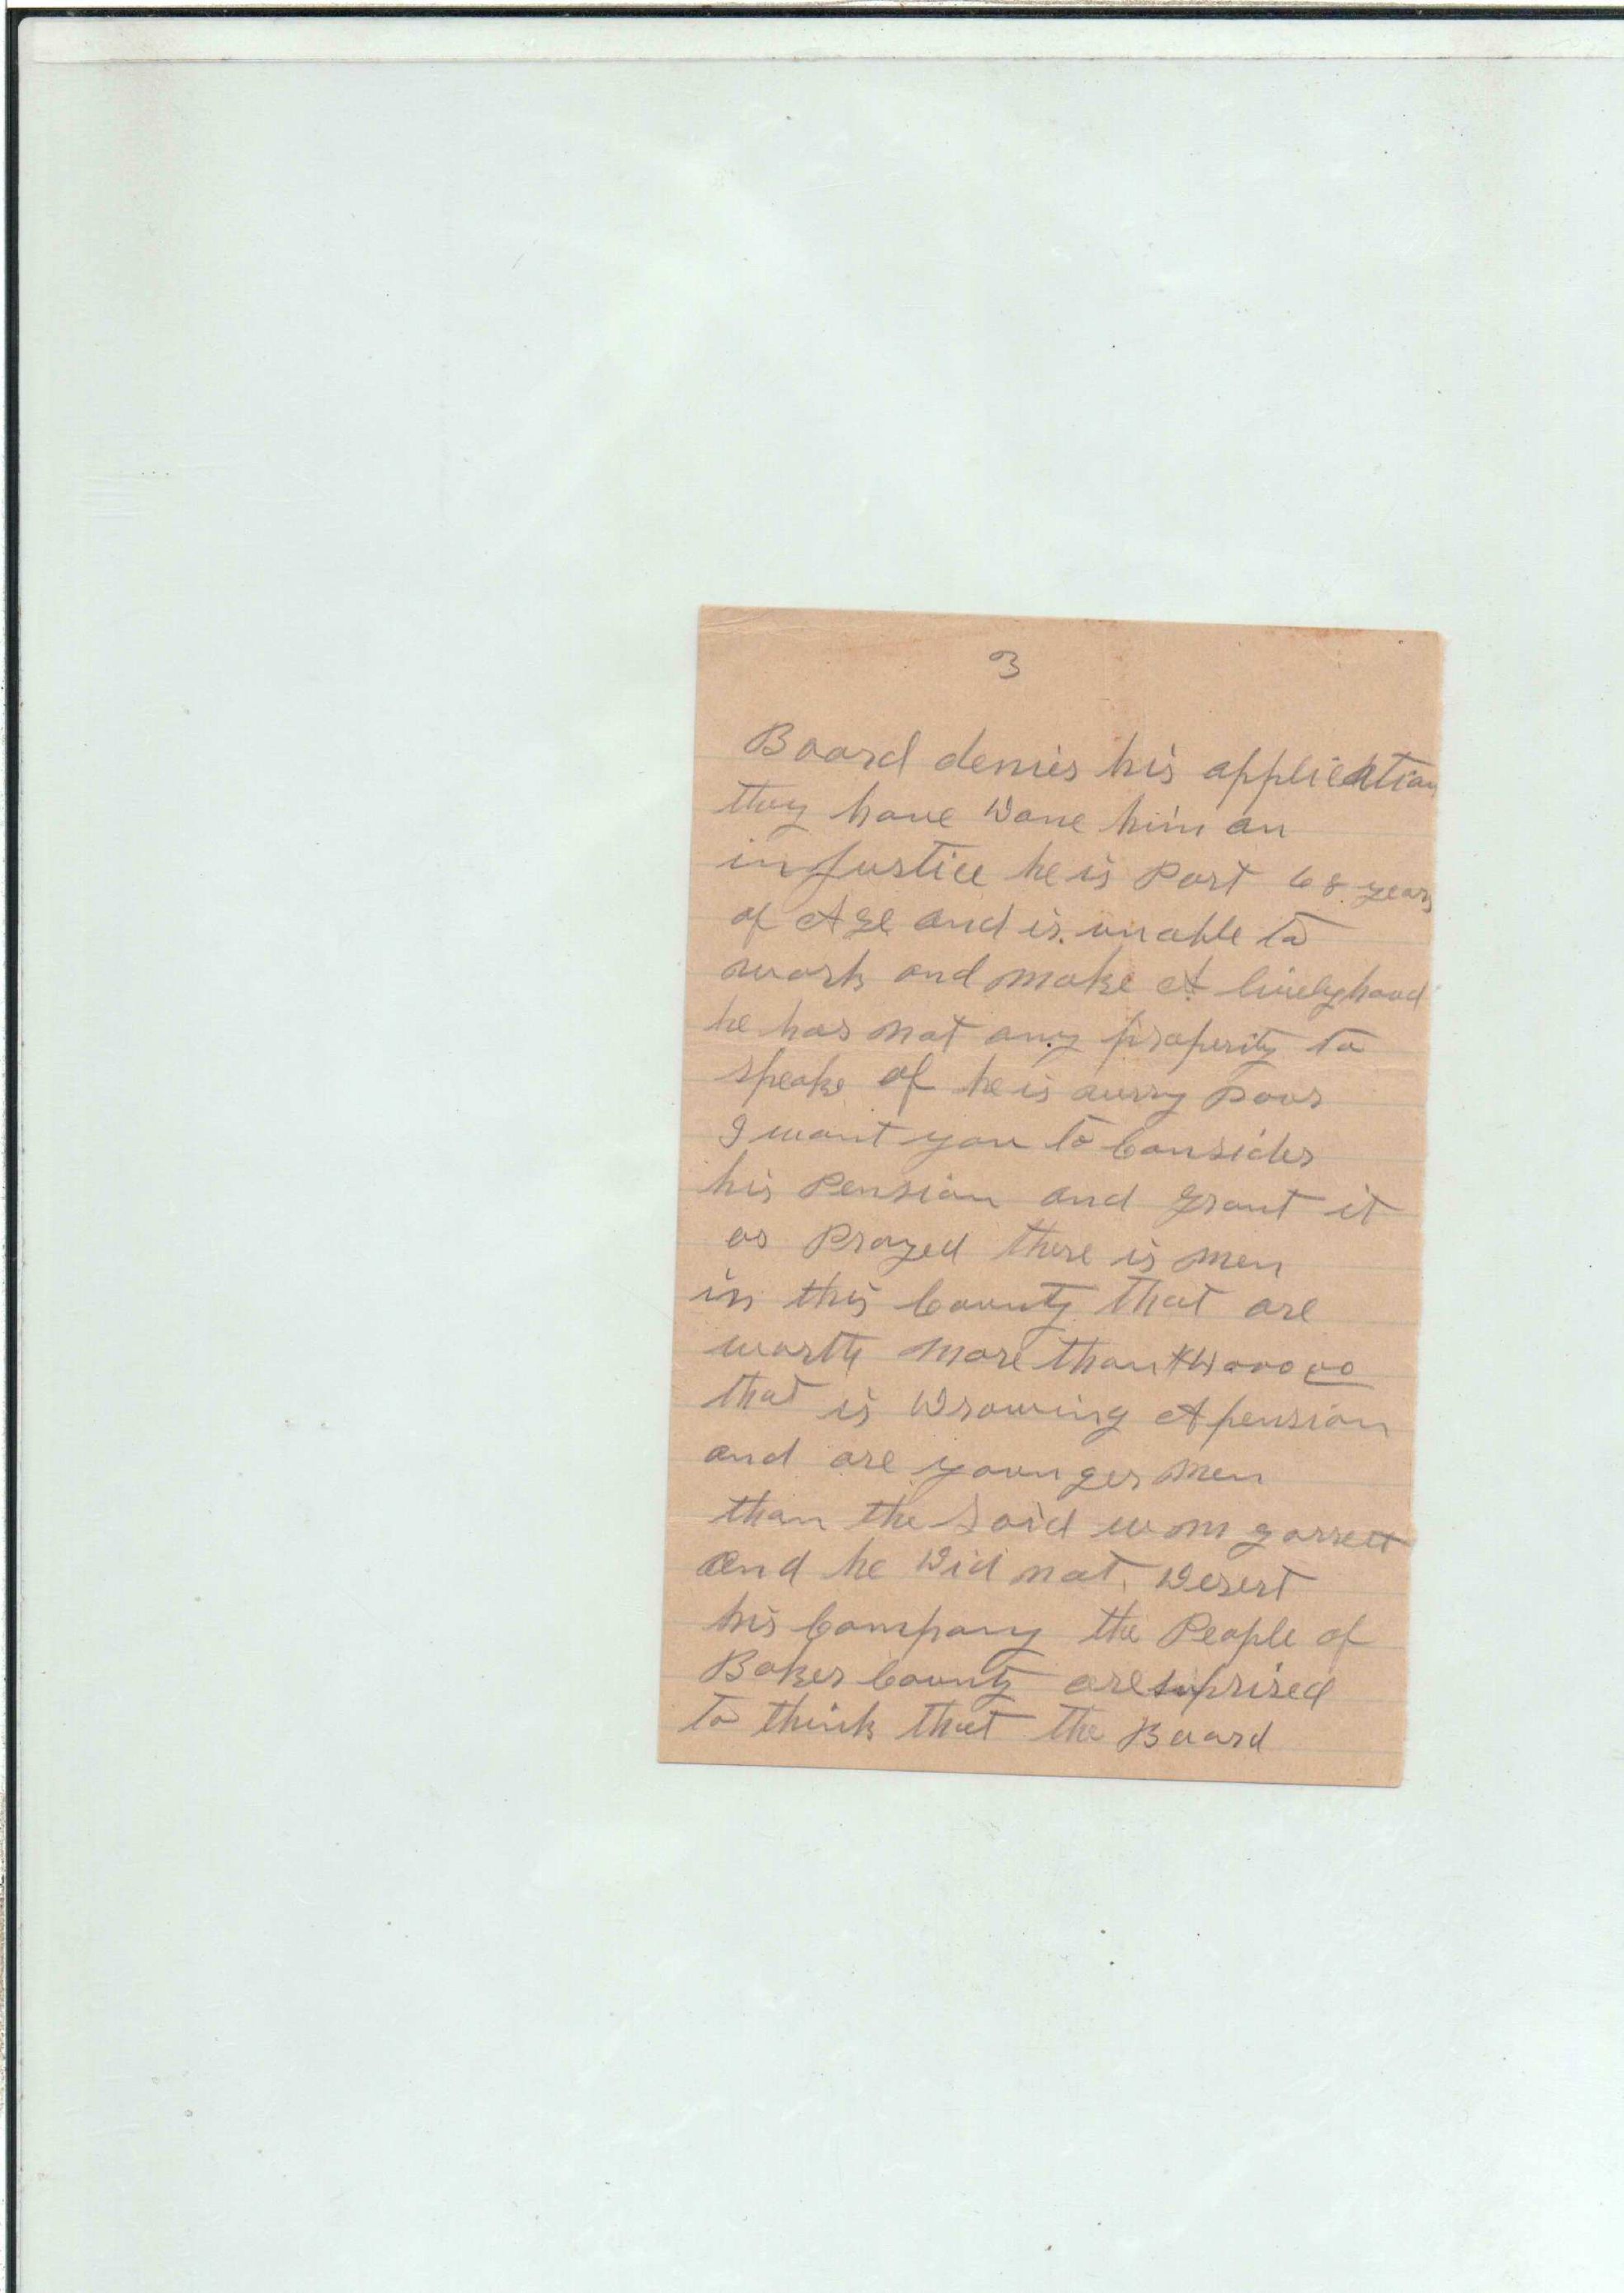 3
Board denies his application
they have Done him an
injustice he is Past 68 years
of Age and is unable to
work and make A livelyhood
he has not any properity to
speake of he is verry Poor
I want you to Consider
his Pension and grant it
as Prayed there is men
in this County that are
worth more than $4000 00
that is Drawing A pension
and are younger men
than the Said Wm garrett
and he Did not Desert
his Company the People of
Baker County are suprised
to think that the Board